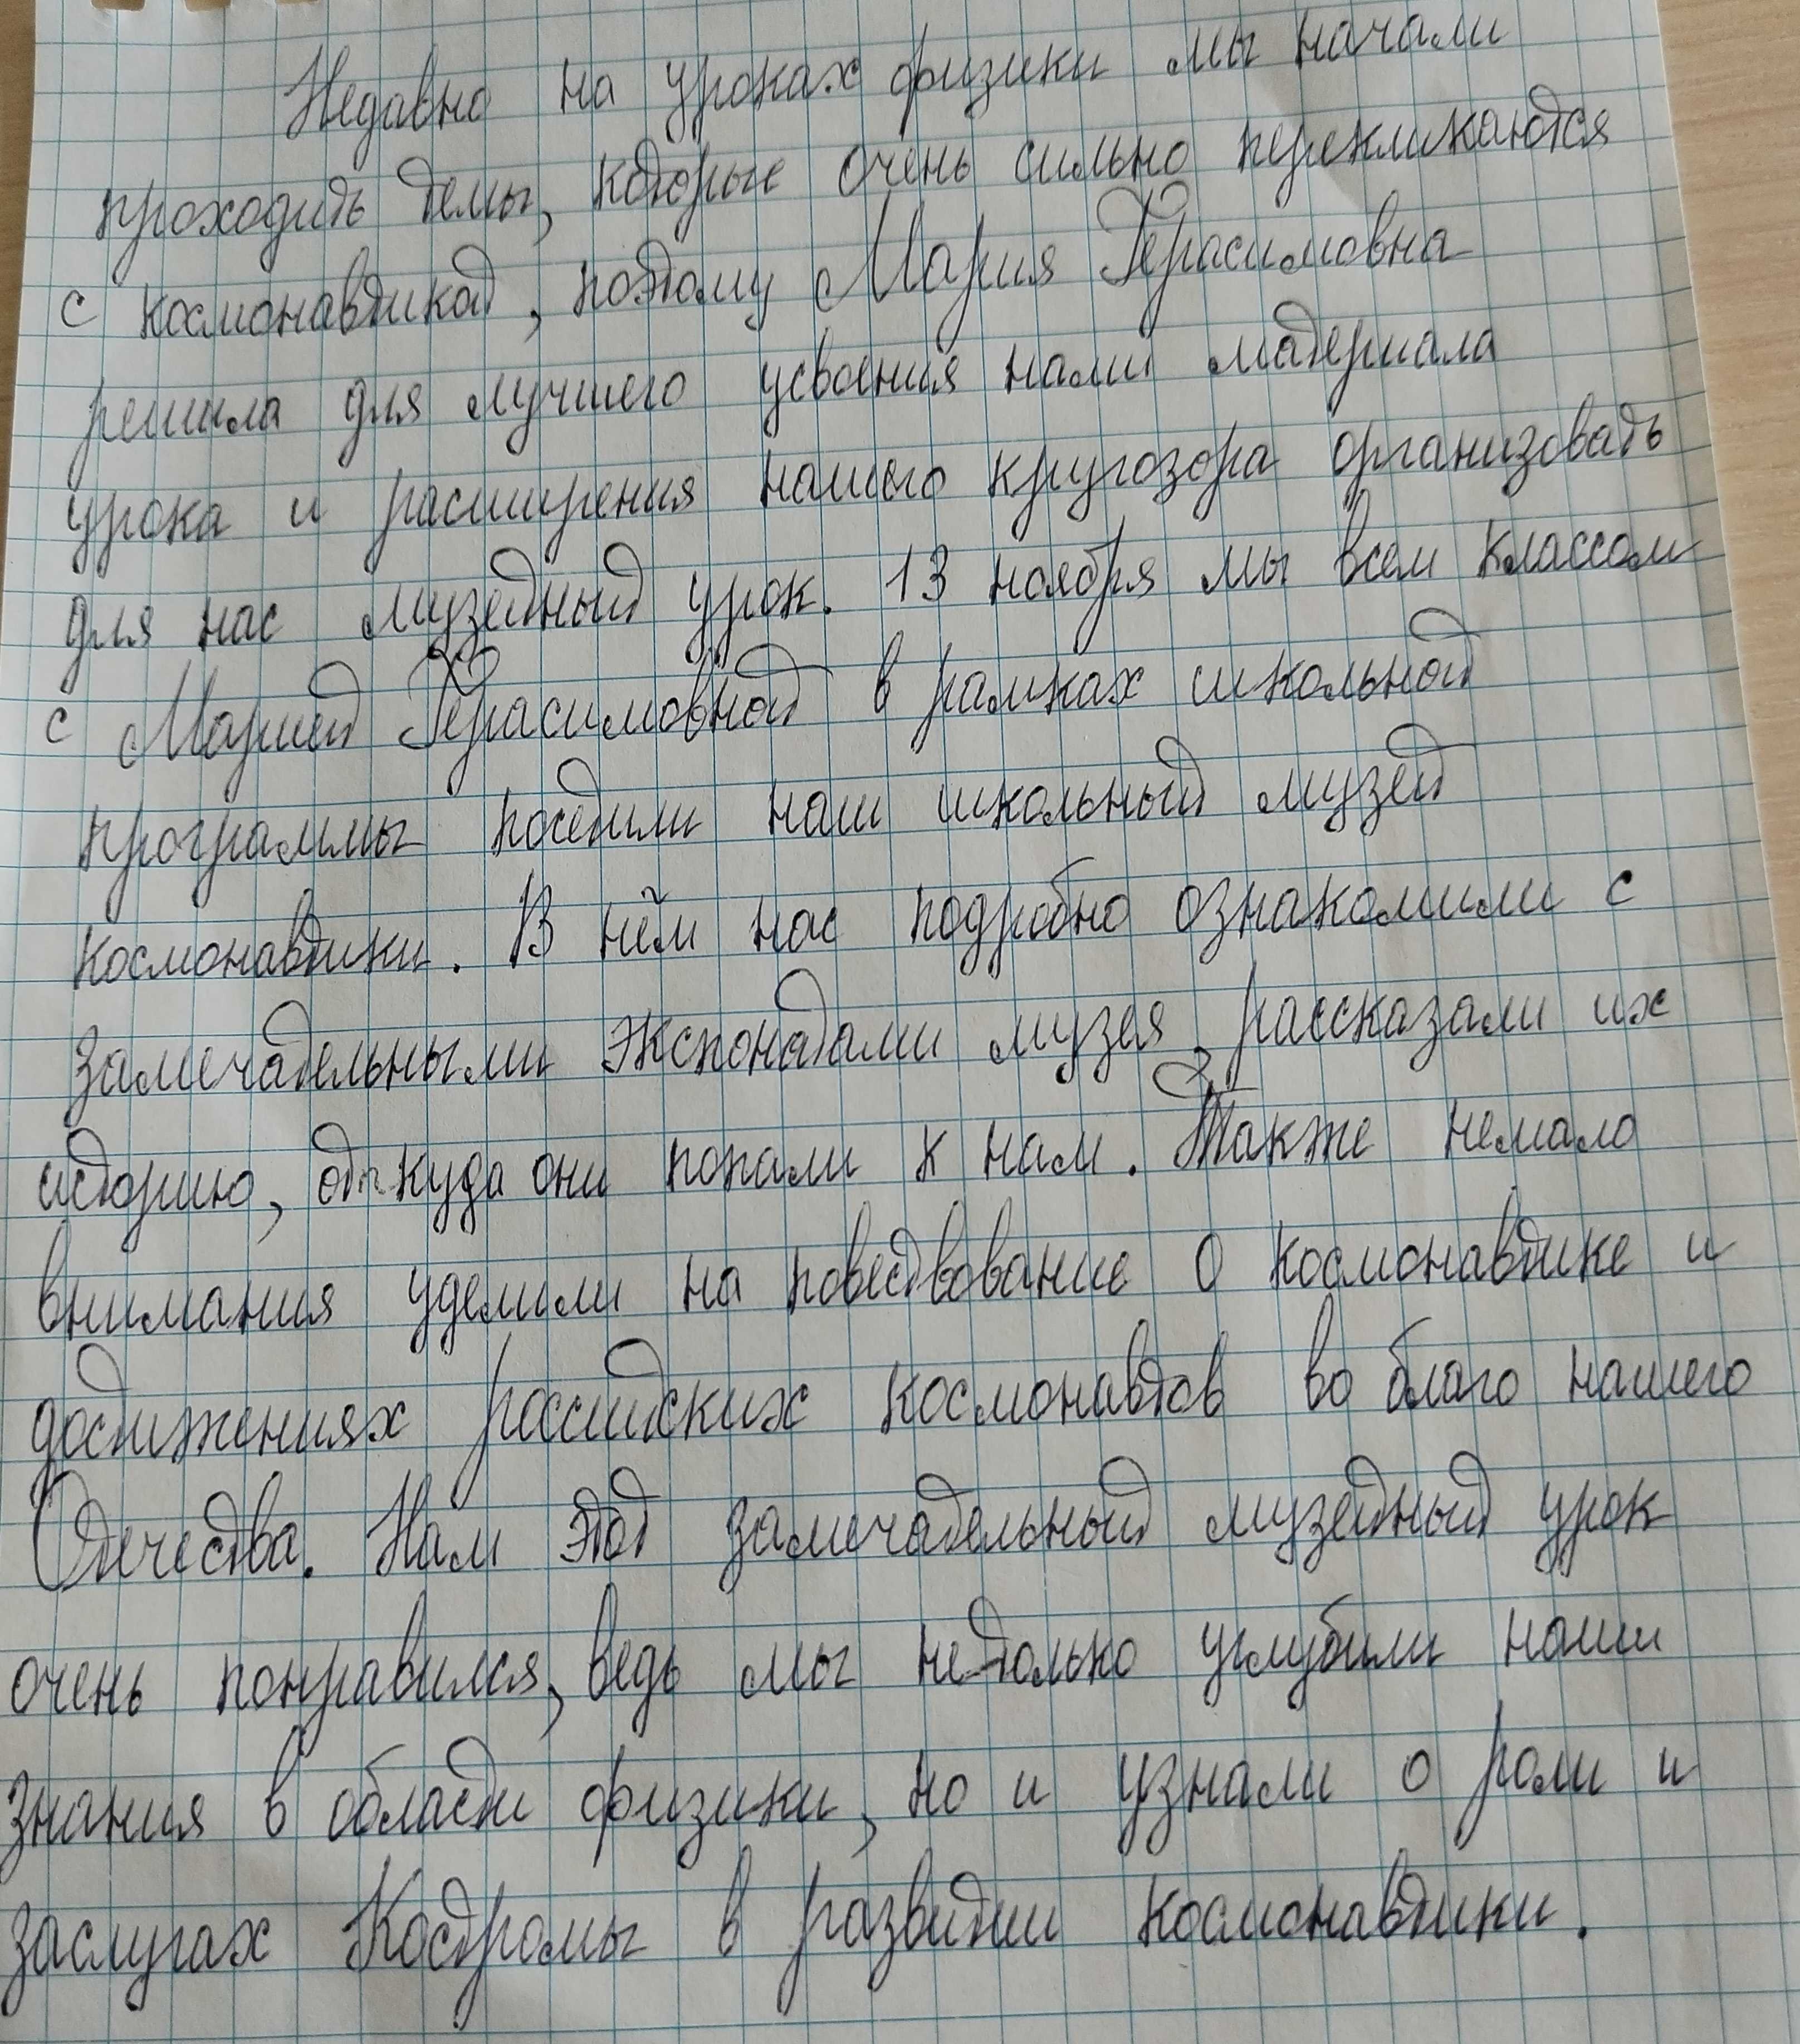 Недавно на уроках физики мы начали
проходить темы, которые очень сильно перекликаются
с космонавтикой, поэтому Мария Герасимовна
решила для лучшего усвоения нами материала
урока и расширения нашего кругозора организовать
для нас музейный урок. 13 ноября мы всем классом
с Марией Герасимовной в рамках школьной
программы посетили наш школьный музей
космонавтики. В нём нас подробно ознакомили с
замечательными экспонатами музея, рассказали их
историю, откуда они попали к нам. Также немало
внимания уделили на повествование о космонавтике и
достижениях российских космонавтов во благо нашего
Отечества. Нам этот замечательный музейный урок
очень понравился, ведь мы не только углубили наши
знания в области физики, но и узнали о роли и
заслугах Костромы в развитии космонавтики.